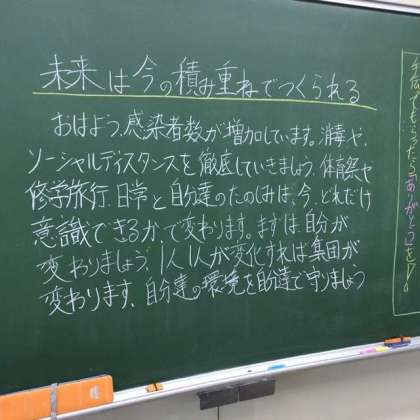 未来は今の積み重ねでつくられる
おはよう。感染者数が増加しています。消毒や、
ソーシャルディスタンスを徹底していきましょう。体育祭や
修学旅行、日常と自分達のたのしみは、今、どれだけ
意識できるか、で変わります。まずは、自分が
変わりましょう。1人1人が変化すれば集団が
変わります、自分達の環境を自分達で守りましょう
手伝ってもらったら「ありがとう」を!!